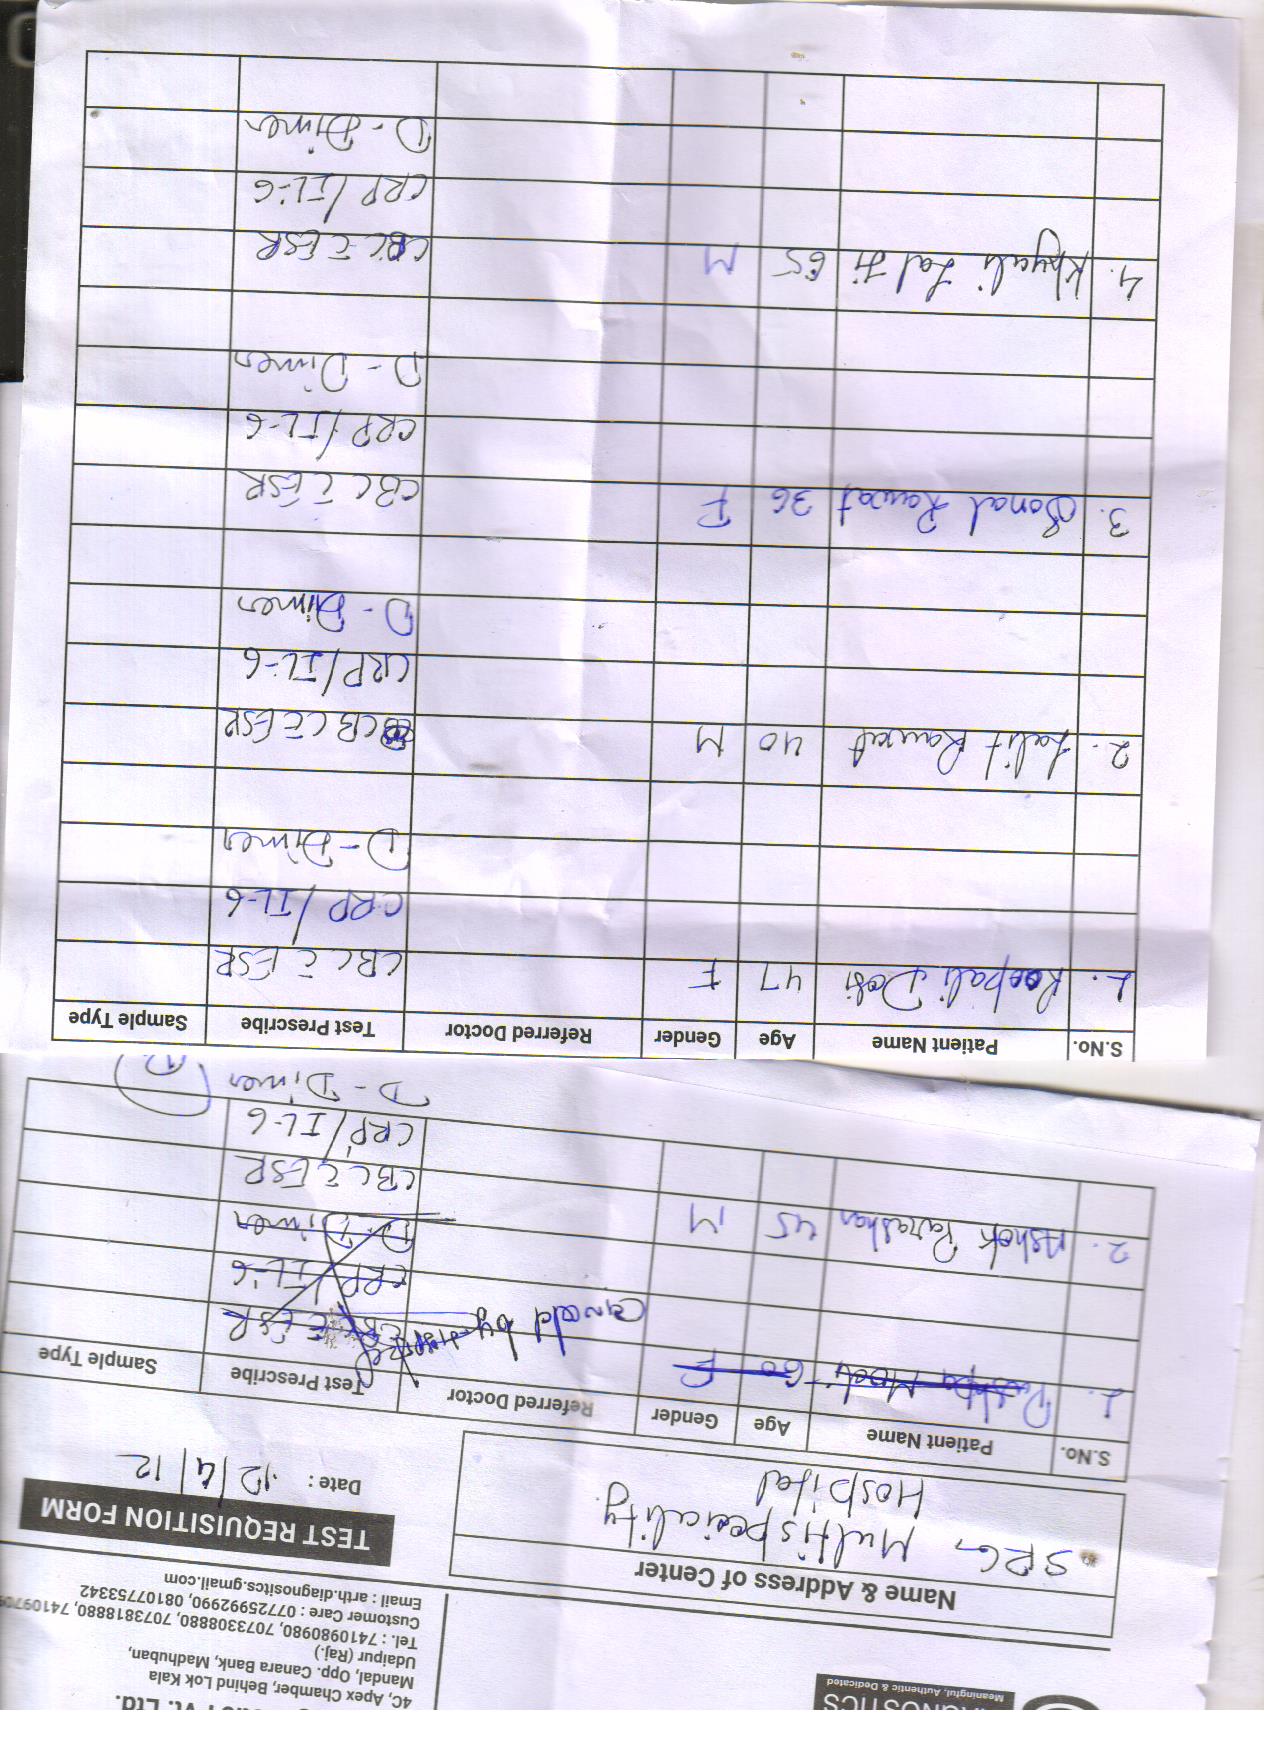 Vt. Ltd.
GNOSTICS
Meaningful, Authentic & Dedicated
4C, Apex Chamber, Behind Lok Kala
Mandal, Opp. Canara Bank, Madhuban,
Udaipur (Raj.)
Tel. : 7410980980, 7073308880, 7073818880, 74109709
Customer Care : 07725992990, 08107753342
Email : arth.diagnositcs.gmail.com
Name & Address of Center
SRG Multispeciality
Hospital
TEST REQUISITION FORM
Date : 12/4/12
S.No. Patient Name Age Gender Referred Doctor Test Prescribe Sample Type
1. Pushpa Modi 60 F CBC c̄ ESR
by
CRP/IL-6
D-Dimer
2. Ashok Parashar 45 M CBC c̄ ESR
CRP/IL-6
D-Dimer
S.No. Patient Name Age Gender Referred Doctor Test Prescribe Sample Type
1. Roopali Dosi 47 F CBC c̄ ESR
CRP/IL-6
D-Dimer
2. Lalit Rawat 40 M CBC c̄ ESR
CRP/IL-6
D-Dimer
3. Sonal Rawat 36 F CBC c̄ ESR
CRP/IL-6
D-Dimer
4. Khyali Lal Ji 65 M CBC c̄ ESR
CRP/IL-6
D-Dimer